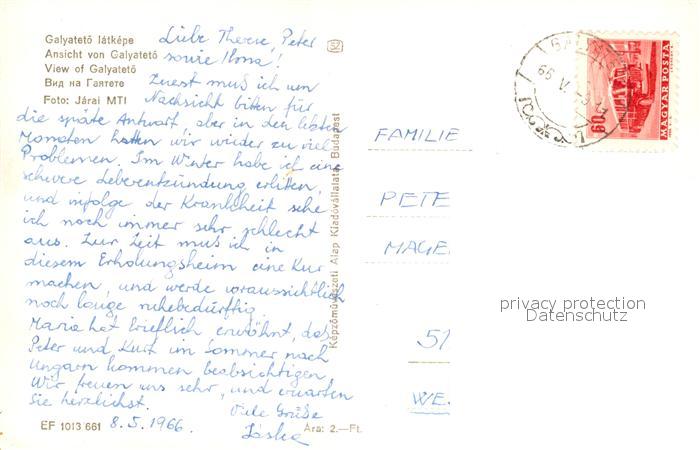 Galyatető látképe
Ansicht von Galyatető
View of Galyatető
Вид на Галтете
Foto: Járai MTI
SZ
Liebe Therese, Peter
sowie Ilona!
Zuerst muß ich um
Nachsicht bitten für
die späte Antwort, aber in den letzten
Monaten hatten wir wieder zu viel
Problemen. Im Winter habe ich eine
schwere Leberentzündung erlitten,
und infolge der Krankheit sehe
ich noch immer sehr schlecht
aus. Zur Zeit muß ich in
diesem Erholungsheim eine Kur
machen, und werde voraussichtlich
noch lange ruhebedürftig.
Maria hat brieflich erwähnt, daß
Peter und Kurt im Sommer nach
Ungarn kommen beabsichtigen.
Wir freuen uns sehr, und erwarten
Sie herzlichst.
Viele Grüße
Jóska
EF 1013 661
8.5.1966.
Ára: 2.—Ft.
Képzőművészeti Alap Kiadóvállalata, Budapest
FAMILIE
PETE
MAGE
51
WE
66 V
60f
MAGYAR POSTA
privacy protection
Datenschutz